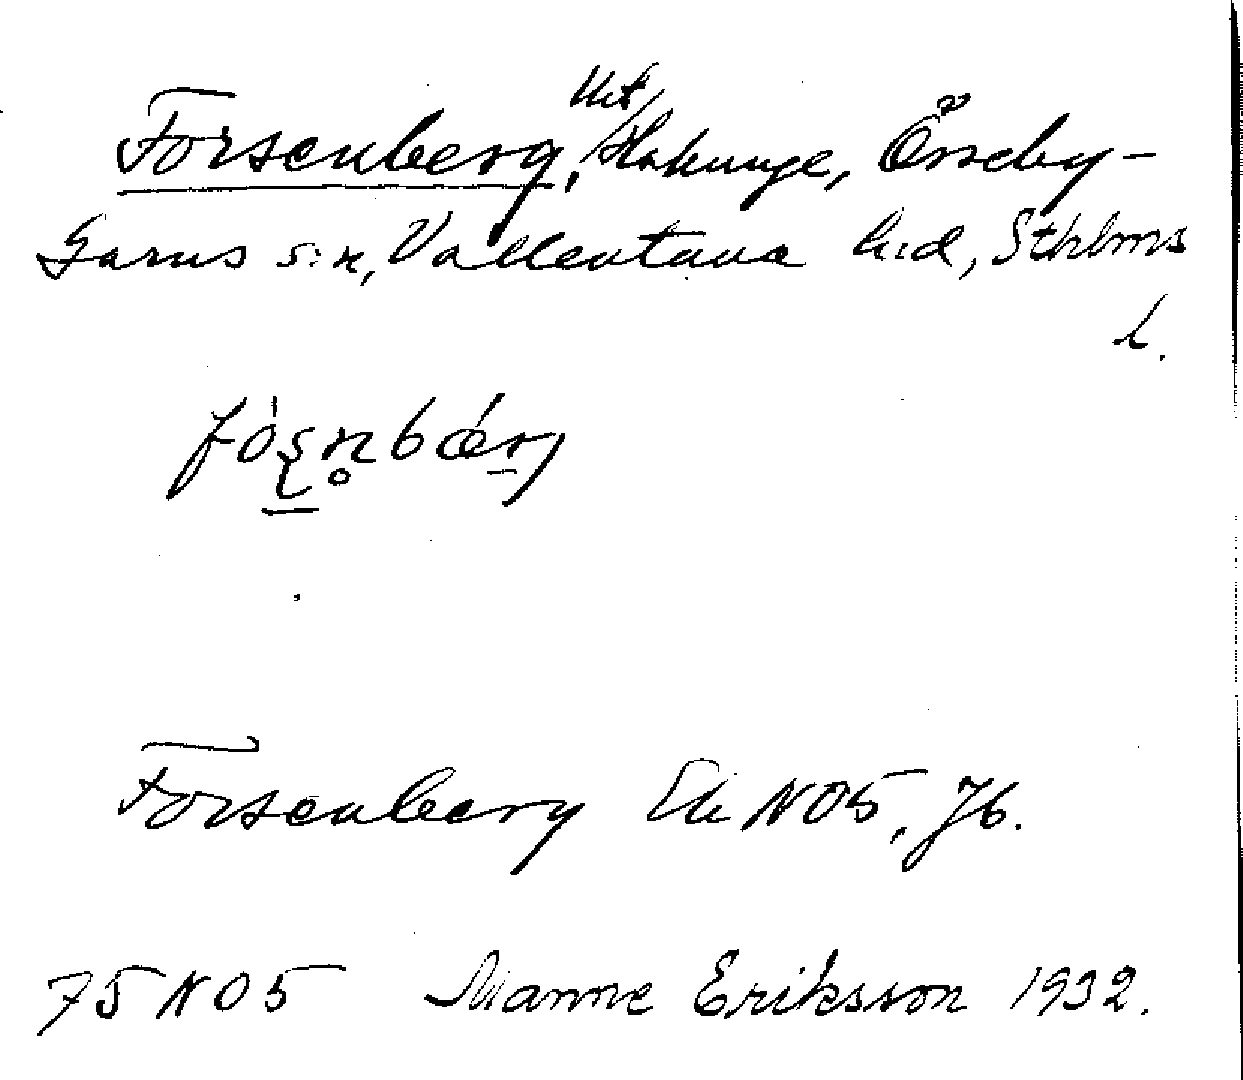 Forsenberg, Hakunge, Össeby-
Garns s:n, Vallentuna h:d, Sthlms
l.
Forsenberg Ek NO5, Jb.
75 NO5 Manne Eriksson 1932.